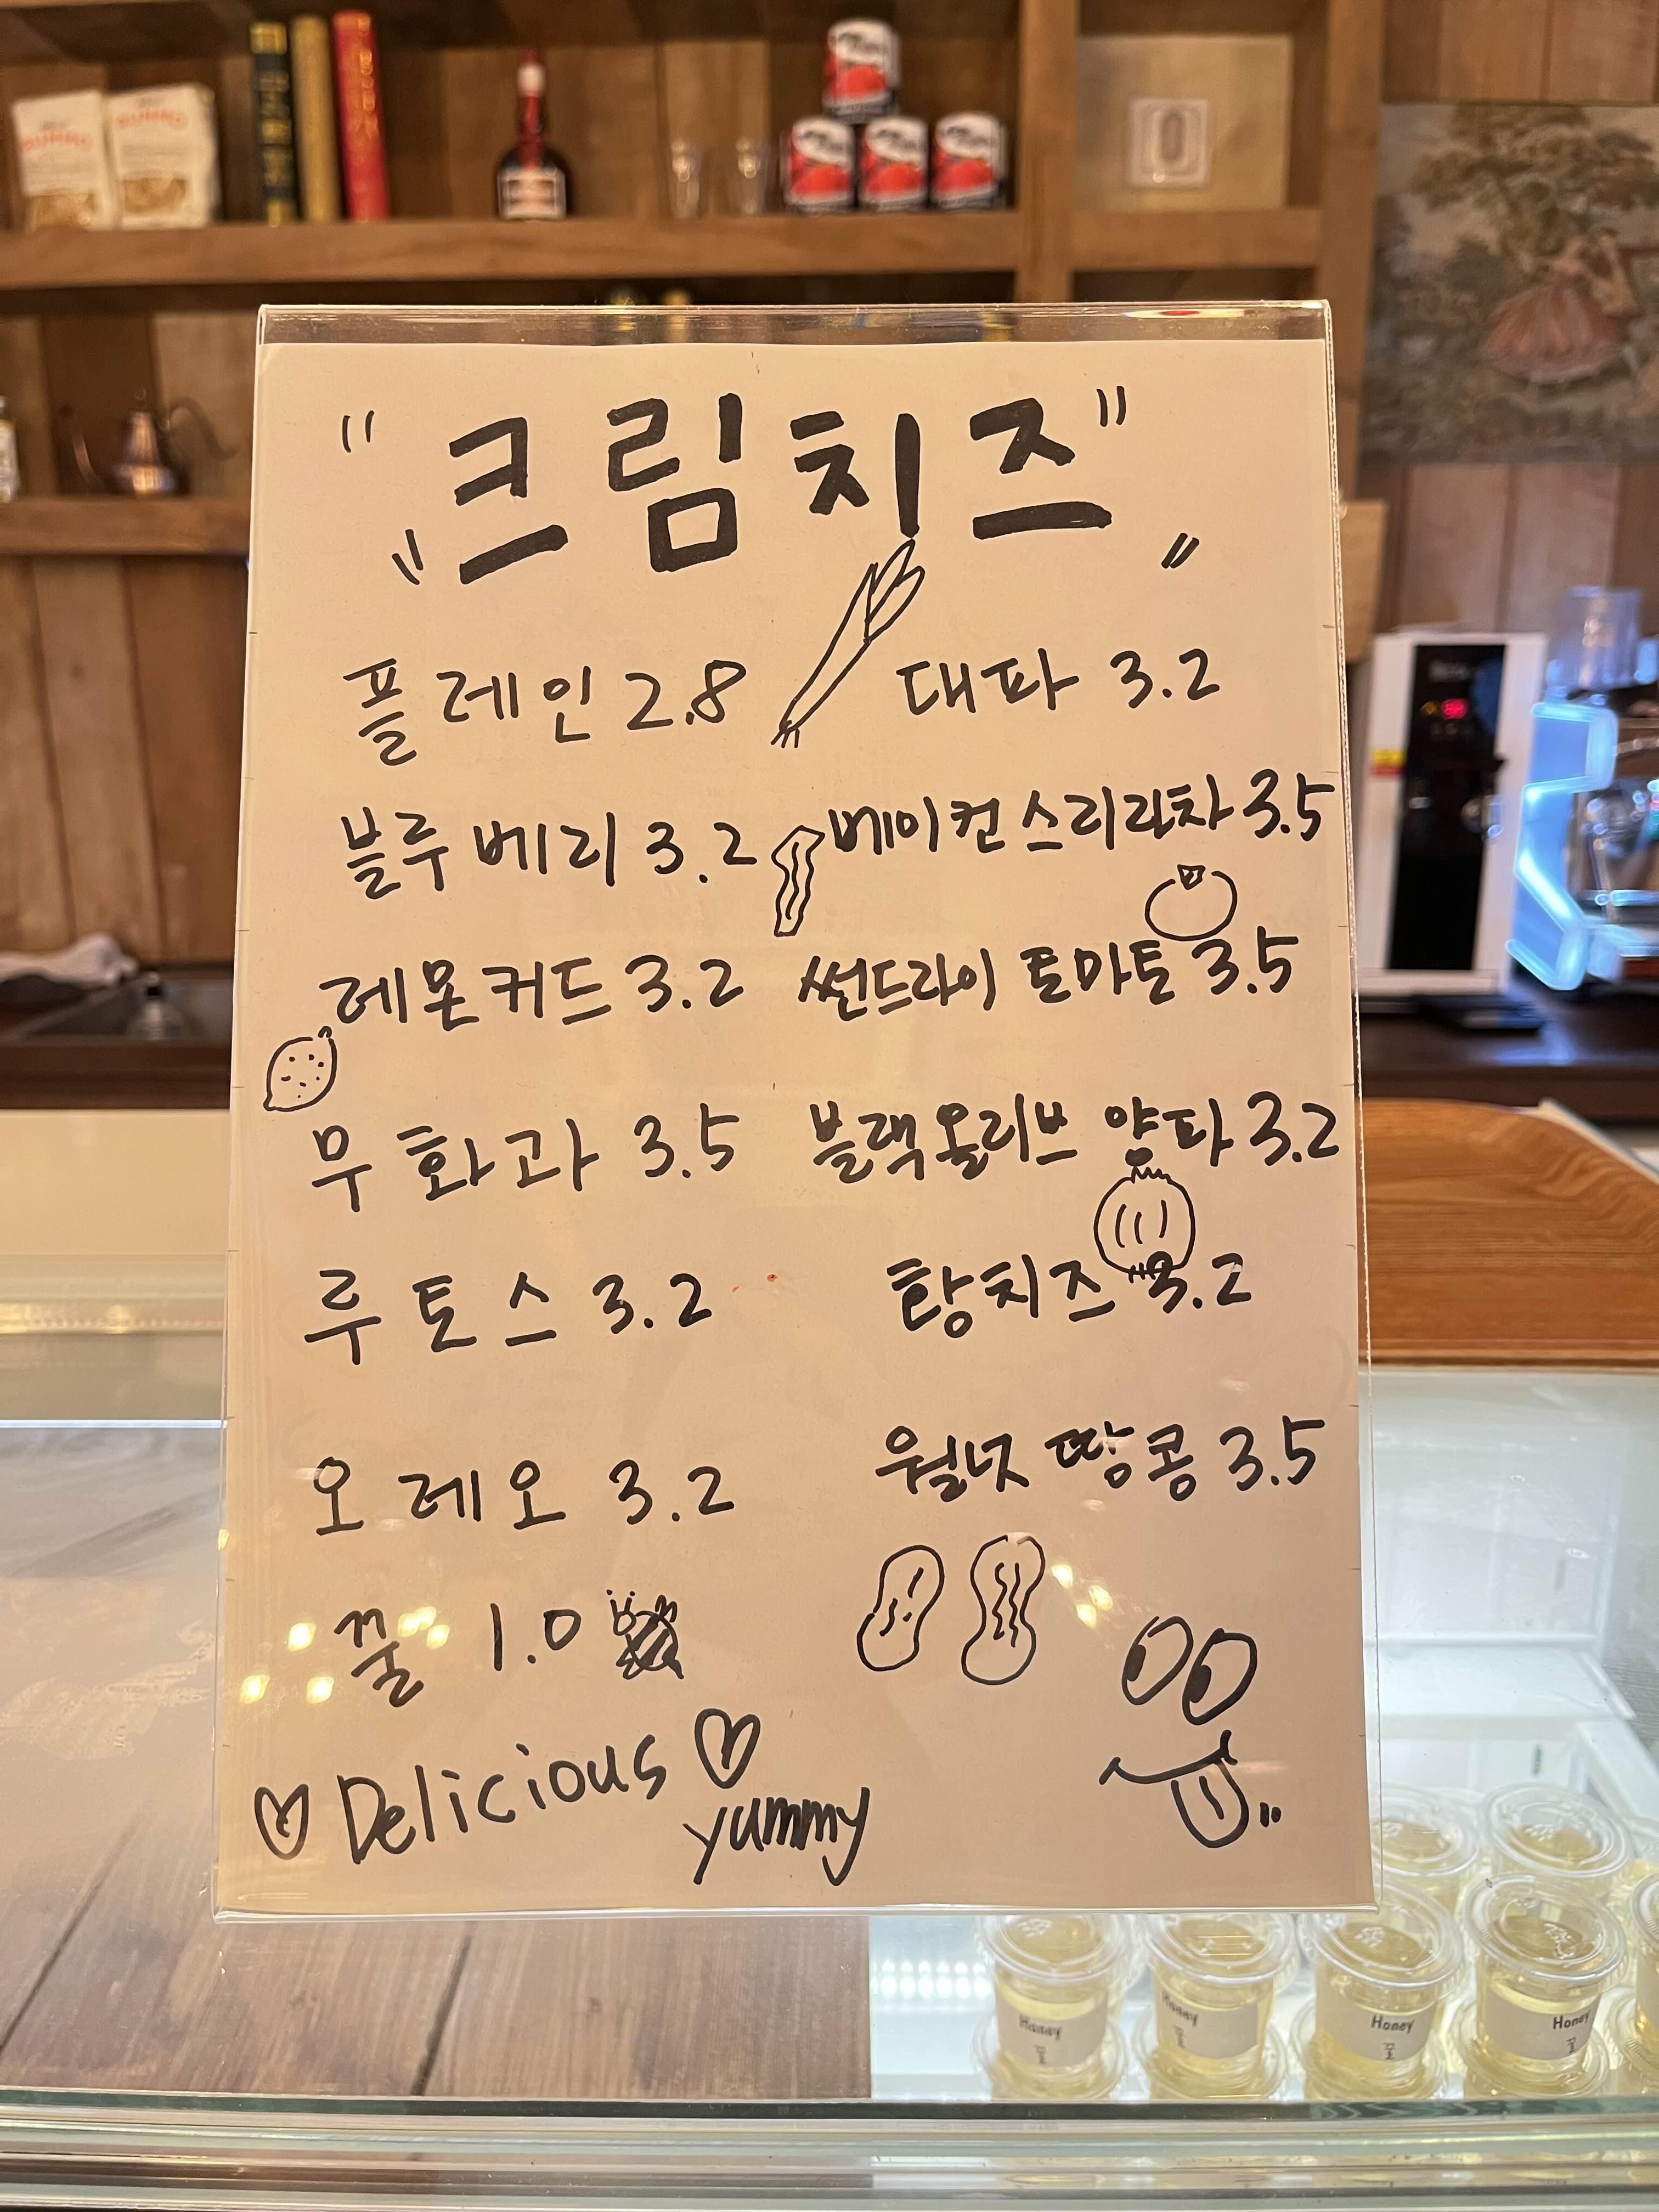 "크림치즈"
플레인 2.8
대파 3.2
블루베리 3.2
베이컨스리라차 3.5
레몬커드 3.2
썬드라이 토마토 3.5
무화과 3.5
블랙올리브 양파 3.2
루토스 3.2
황치즈 3.2
오레오 3.2
월넛 땅콩 3.5
꿀 1.0
Delicious
yummy
Honey
꿀
Honey
꿀
Honey
꿀
Honey
꿀